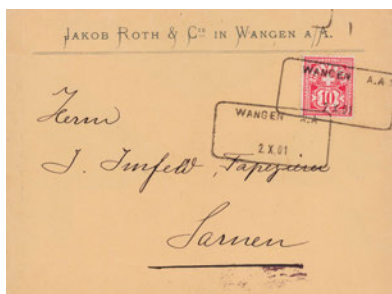 JAKOB ROTH & Cie IN WANGEN a/A.
WANGEN A.A
2.X.01
10
WANGEN A.A
2.X.01
Herrn
J. Imfeld, Tapezierer
Sarnen